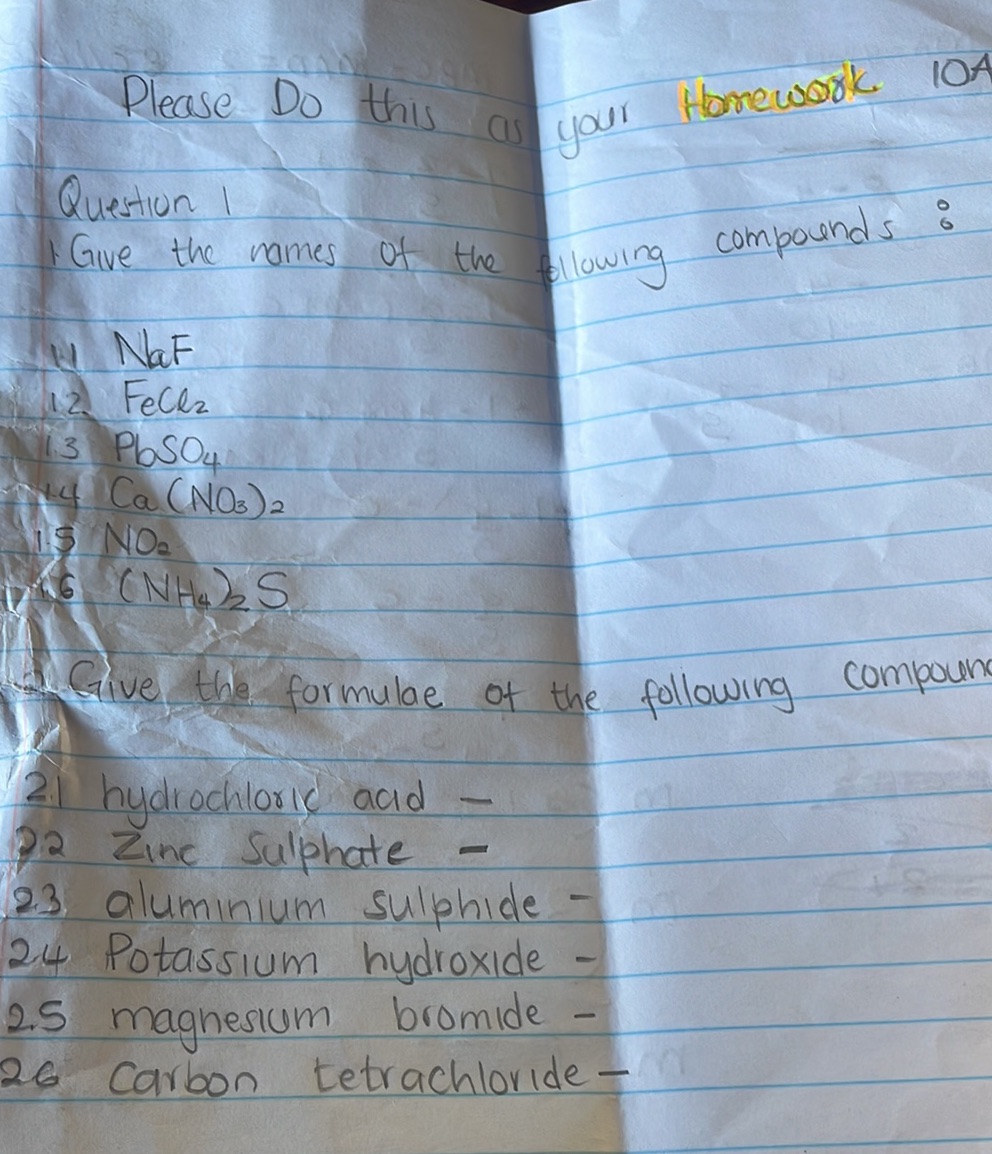 Please Do this as your Homework 10A
Question 1
1. Give the names of the following compounds :
1.1 NaF
1.2 FeCl₂
1.3 PbSO₄
1.4 Ca(NO₃)₂
1.5 NO₂
1.6 (NH₄)₂S
2. Give the formulae of the following compound
2.1 hydrochloric acid –
2.2 Zinc Sulphate –
2.3 aluminium sulphide –
2.4 Potassium hydroxide –
2.5 magnesium bromide –
2.6 Carbon tetrachloride –